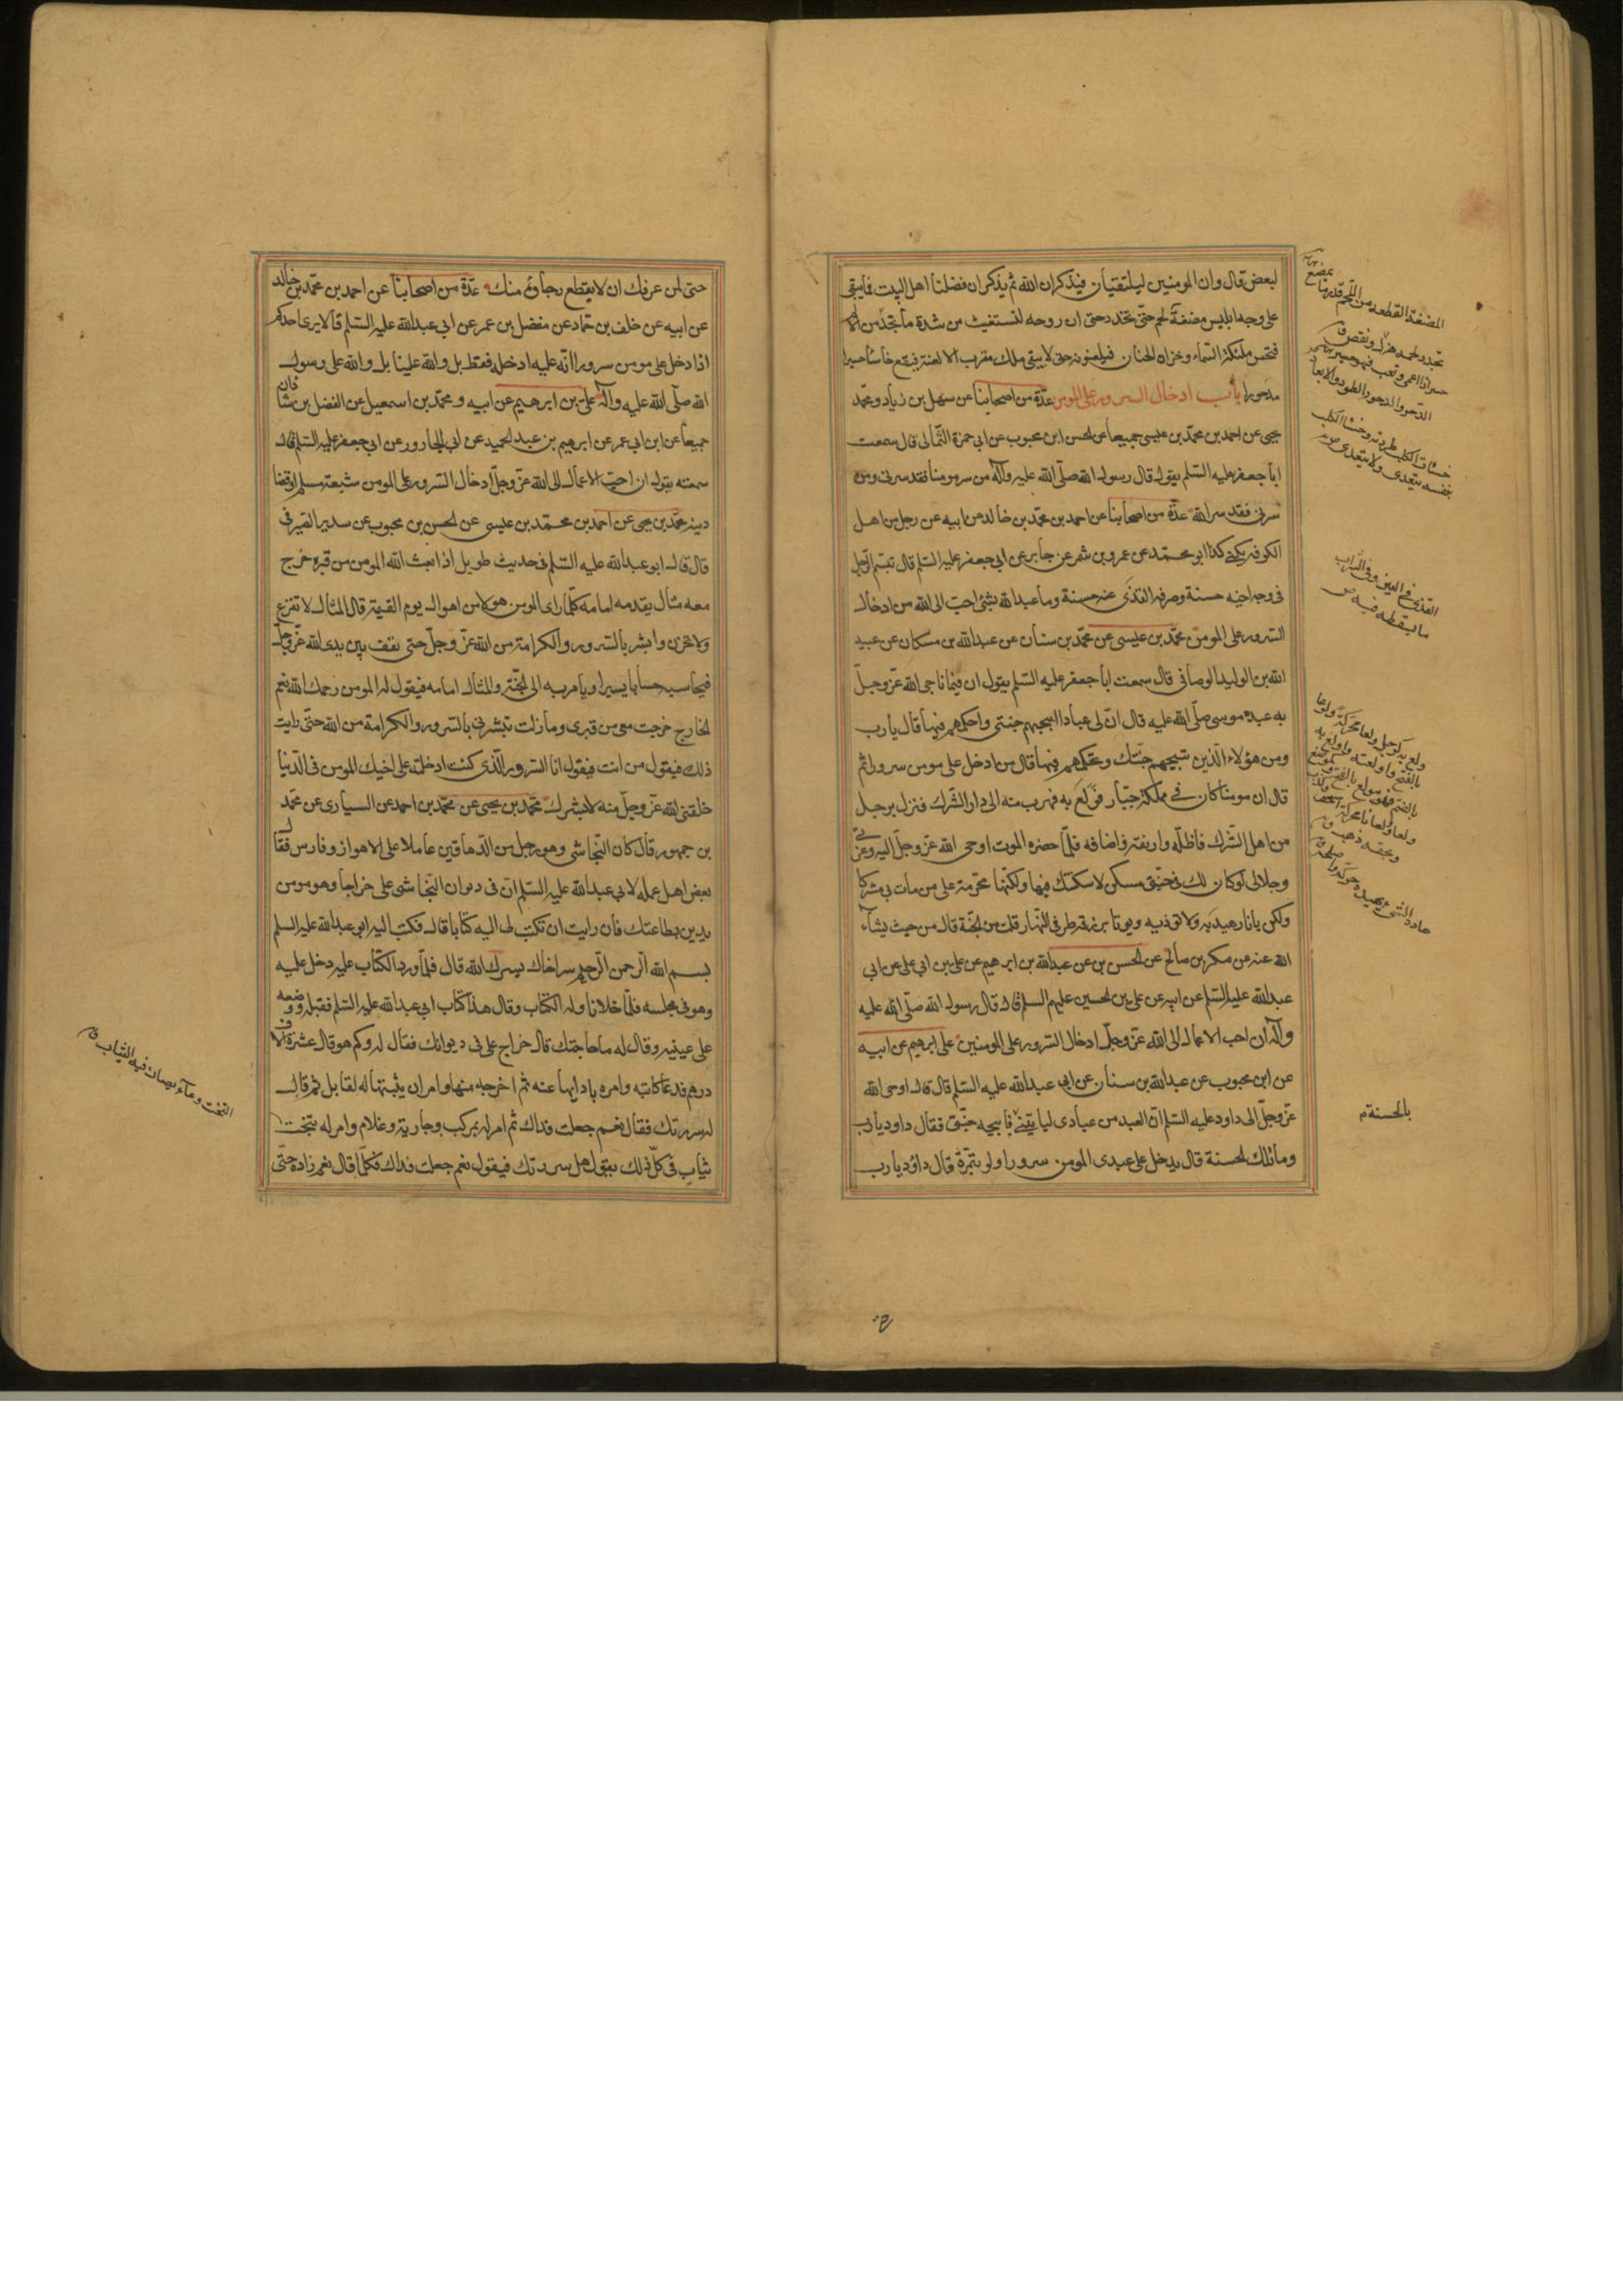 لبعض قال وان المومنين ليلتقيان فيذكران الله ثم يذكران فضلنا اهل البيت فما يبقى
على وجه ابليس مضغة لحم حتى تخدد حتى ان روحه لتستغيث من شدة ما تجد من الالم
فتحس ملئكة السماء وخزان الجنان فيلعنونه حتى لا يبقى ملك مقرب الا لعنه فيقع خاسئا حسيرا
مدحورا باب ادخال السرور على المومن عدة من اصحابنا عن سهل بن زياد ومحمد
يحيى عن احمد بن محمد بن عيسى جميعا عن الحسن ابن محبوب عن ابي حمزة الثمالى قال سمعت
ابا جعفر عليه السلم يقول قال رسول الله صلى الله عليه وآله من سر مومنا فقد سرنى ومن
سرنى فقد سر الله عدة من اصحابنا عن احمد بن محمد بن خالد عن ابيه عن رجل من اهل
الكوفه يكنى كذا ابو محمد عن عمرو بن شمر عن جابر عن ابي جعفر عليه السلم قال تبسم الرجل
فى وجه اخيه حسنة وصرفه القذى عنه حسنة وما عبد الله بشئ احب الى الله من ادخال
السرور على المومن محمد بن عيسى عن محمد بن سنان عن عبد الله بن مسكان عن عبيد
الله بن الوليد الوصافى قال سمعت ابا جعفر عليه السلم يقول ان فيما ناجى الله عز وجل
به عبده موسى صلى الله عليه قال ان لى عبادا ابيحهم جنتى واحكمهم فيها قال يا رب
ومن هؤلاء الذين تبيحهم جنتك وتحكمهم فيها قال من ادخل على مومن سرورا ثم
قال ان مومنا كان في مملكة جبار فولع به فهرب منه الى دار الشرك فنزل برجل
من اهل الشرك فاظله وارفقه واضافه فلما حضره الموت اوحى الله عز وجل اليه وعزتى
وجلالى لو كان لك فى جنتى مسكن لاسكنتك فيها ولكنها محرمة على من مات بي مشركا
ولكن يا نار هيديه ولا توذيه ويوتا برزقه طرفى النهار قلت من الجنة قال من حيث يشآء
الله عنه عن بكر بن صالح عن الحسن بن عن عبد الله بن ابرهيم عن على بن ابي على عن ابي
عبد الله عليه السلم عن ابيه عن على بن الحسين عليهم السلم قال قال رسول الله صلى الله عليه
وآله ان احب الاعمال الى الله عز وجل ادخال السرور على المومنين على ابرهيم عن ابيه
عن ابن محبوب عن عبد الله بن سنان عن ابي عبد الله عليه السلم قال قال اوحى الله
عز وجل الى داود عليه السلم ان العبد من عبادى لياتينى فابيحه جنتى فقال داود يا رب
وما تلك الحسنة قال يدخل على عبدى المومن سرورا ولو بتمرة قال داود يا رب
المضغة القطعه من اللحم قدر ما يمضغ نهايه
تخدد لحمه هزل ونقص ق
القذى في العين وفي الشراب
ما يسقط فيه ص
بالحسنة م
حتى لمن عرفك ان لا يقطع رجاؤه منك عدة من اصحابنا عن احمد بن محمد بن خالد
عن ابيه عن خلف بن حماد عن مفضل بن عمر عن ابي عبد الله عليه السلم قال لا يرى احدكم
اذا دخل على مومن سرورا انه عليه ادخله فقط بل والله علينا بل والله على رسول
الله صلى الله عليه وآله على بن ابرهيم عن ابيه ومحمد بن اسمعيل عن الفضل بن شاذان
جميعا عن ابن ابي عمر عن ابرهيم بن عبد الحميد عن ابي الجارود عن ابي جعفر عليه السلم قال
سمعته يقول ان احب الاعمال الى الله عز وجل ادخال السرور على المومن شبعة مسلم او قضا
دينه محمد بن يحيى عن احمد بن محمد بن عيسى عن الحسن بن محبوب عن سدير الصيرفى
قال قال ابو عبد الله عليه السلم فى حديث طويل اذا بعث الله المومن من قبره خرج
معه مثال يقدمه امامه كلما راى المومن هولا من اهوال يوم القيمة قال المثال لا تفزع
ولا تحزن وابشر بالسرور والكرامة من الله عز وجل حتى يقف بين يدى الله عز وجل
فيحاسبه حسابا يسيرا ويامر به الى الجنة والمثال امامه فيقول له المومن رحمك الله نعم
الخارج خرجت معى من قبرى وما زلت تبشرنى بالسرور والكرامة من الله حتى رايت
ذلك فيقول من انت فيقول انا السرور الذى كنت ادخلته على اخيك المومن فى الدنيا
خلقنى الله عز وجل منه لابشرك محمد بن يحيى عن محمد بن احمد عن السيارى عن محمد
بن جمهور قال كان النجاشى وهو رجل من الدهاقين عاملا على الاهواز وفارس فقال
بعض اهل عمله لابى عبد الله عليه السلم ان فى ديوان النجاشى على خراجا وهو مومن
يدين بطاعتك فان رايت ان تكتب لى اليه كتابا قال فكتب اليه ابو عبد الله عليه السلم
بسم الله الرحمن الرحيم سر اخاك يسرك الله قال فلما ورد الكتاب عليه دخل عليه
وهو فى مجلسه فلما خلا ناوله الكتاب وقال هذا كتاب ابي عبد الله عليه السلم فقبله ووضعه
على عينيه وقال له ما حاجتك قال خراج على فى ديوانك فقال له وكم هو قال عشرة الاف
درهم فدعا كاتبه وامره بادايها عنه ثم اخرجه منها وامر ان يثبتها له لقابل ثم قال
له سررتك فقال نعم جعلت فداك ثم امر له بمركب وجارية وغلام وامر له بتخت
ثياب فى كل ذلك يقول هل سررتك فيقول نعم جعلت فداك فكلما قال نعم زاده حتى
التخت وعآء يصان فيه الثياب ق